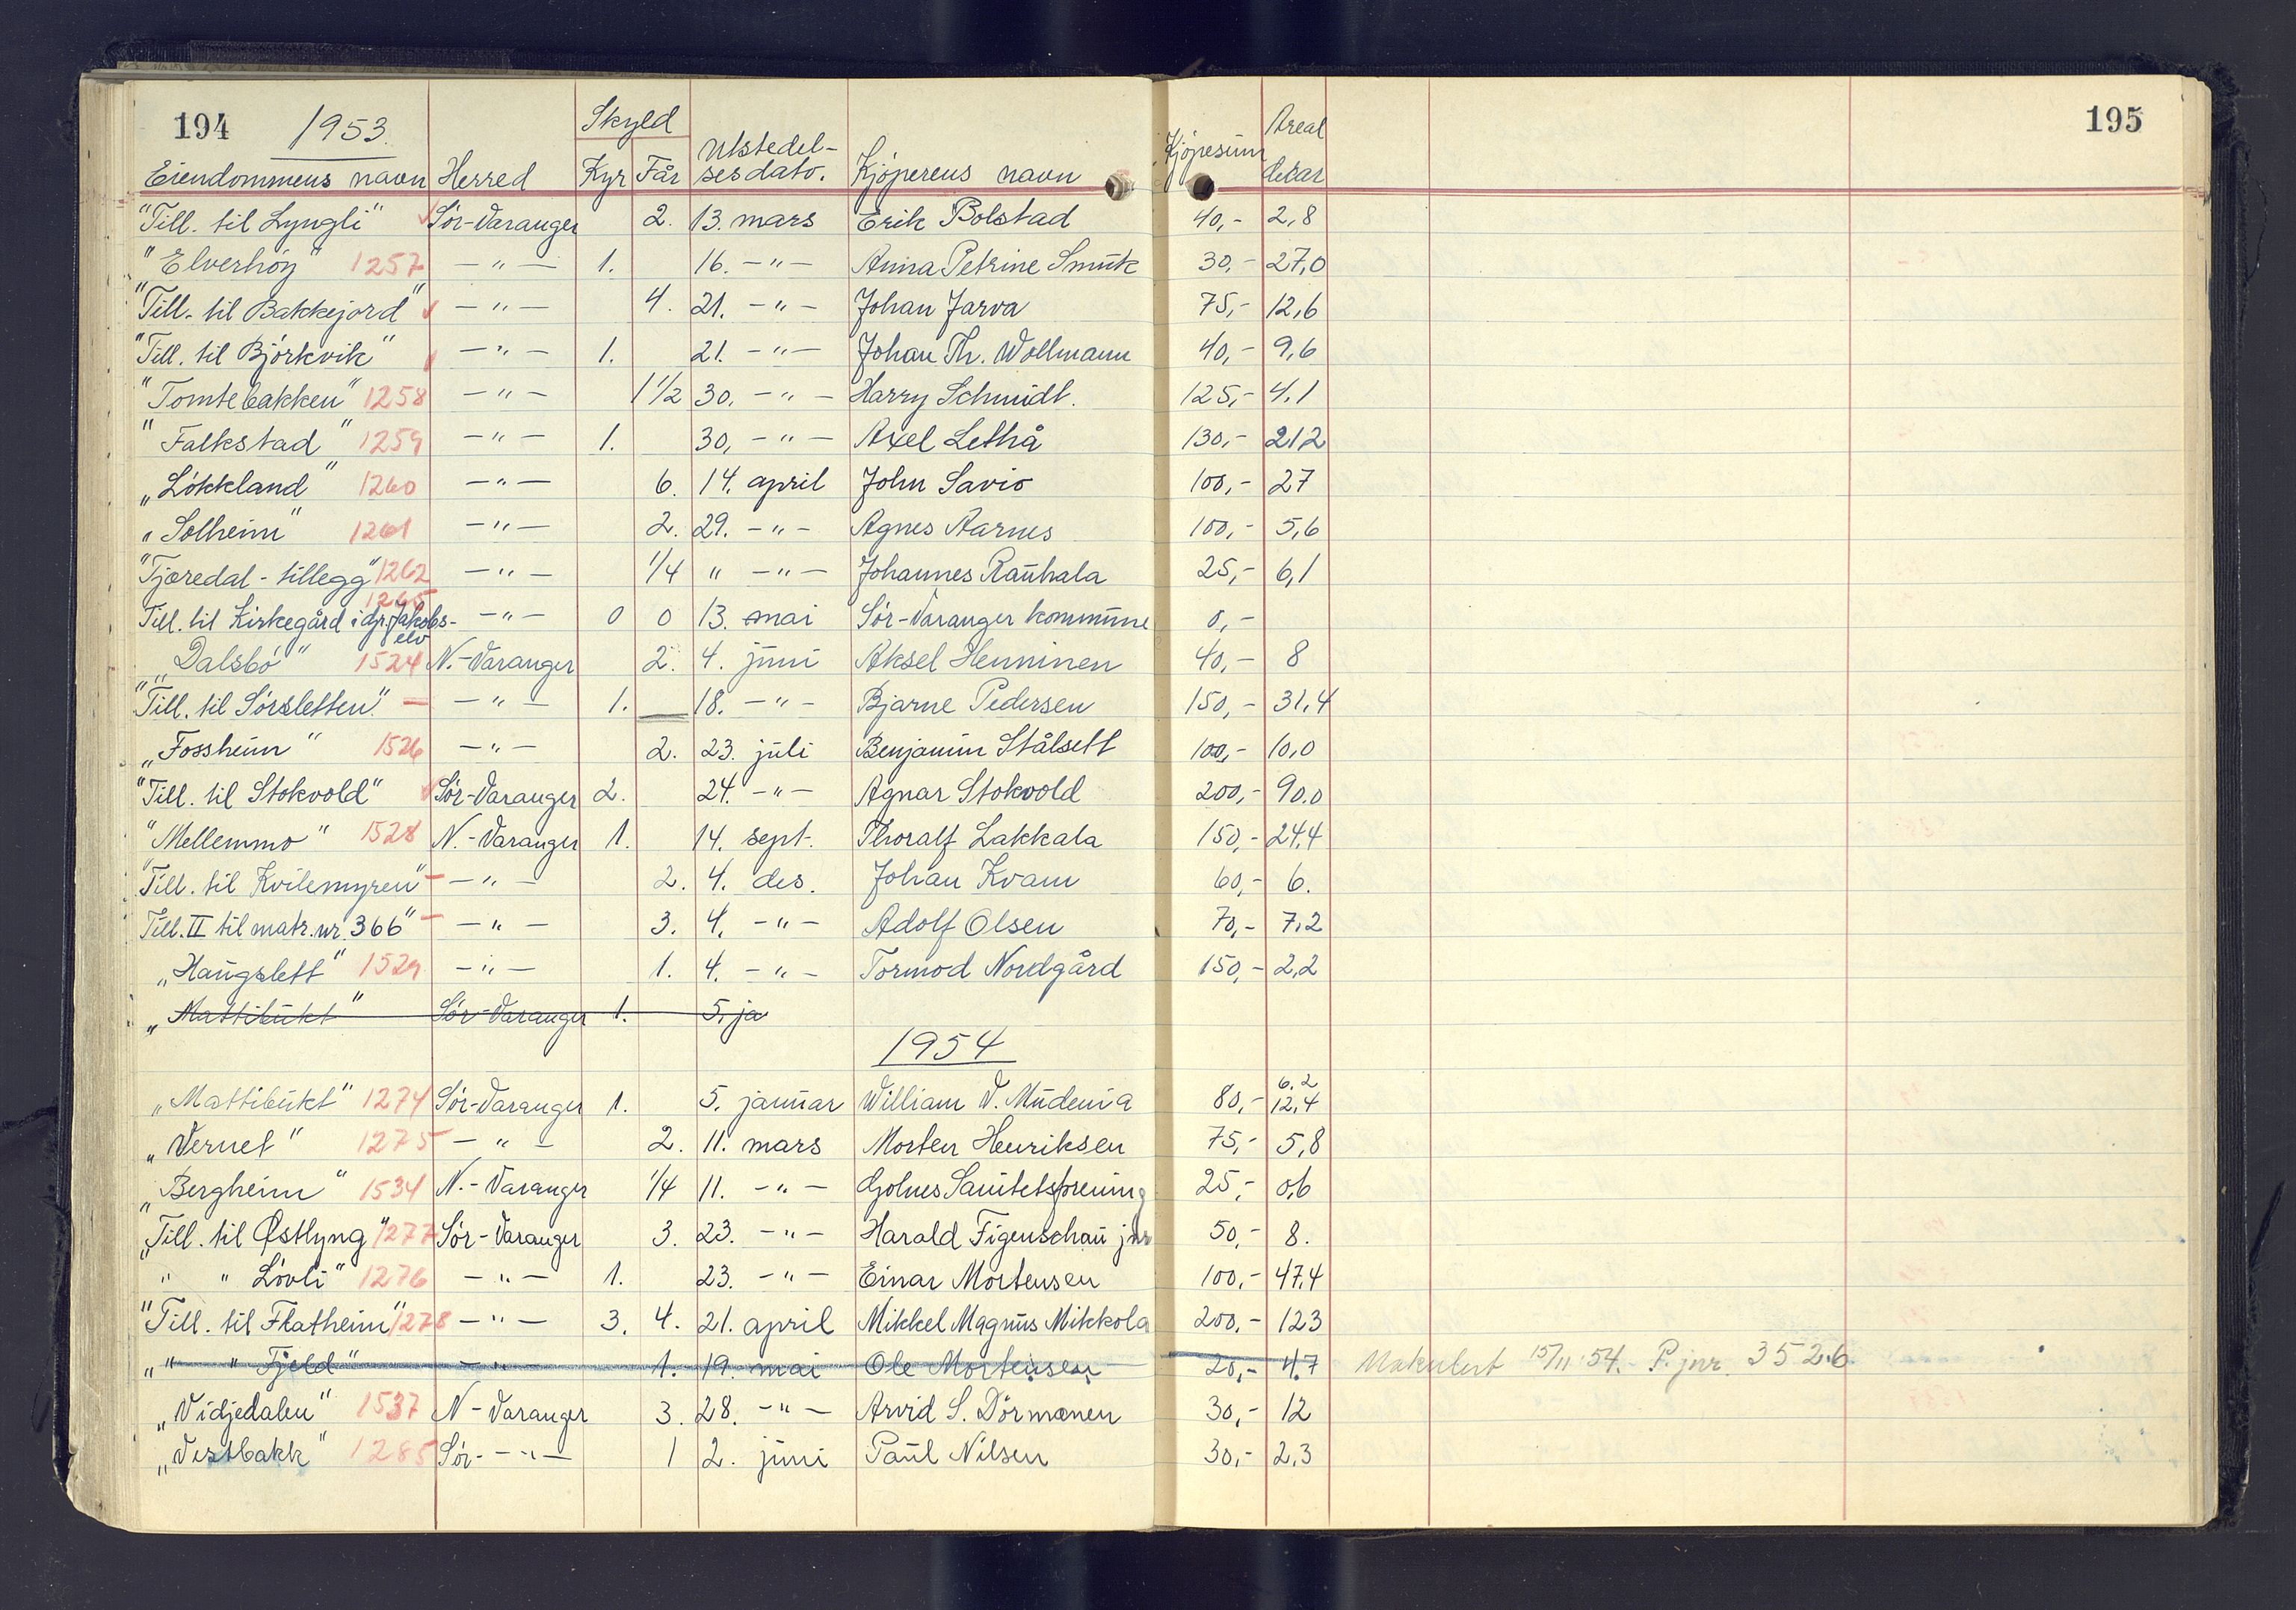 194 1953. Skyld Areal 195
Eiendommens navn Herred Kyr Får Utstedel-sesdato. Kjöperens navn Kjöpesum dekar
"Till. til Lyngli" Sör-Varanger 2. 13. mars Erik Bolstad 40,- 2,8
"Elverhöy" 1257 — " — 1. 16. — " — Anna Petrine Smuk 30,- 27,0
"Till. til Bakkejord" — " — 4. 21. — " — Johan Jarva 75,- 12,6
"Till. til Björkvik" — " — 1. 21. — " — Johan Th. Wollmann 40,- 9,6
"Tomtebakken" 1258 — " — 1 1/2 30. — " — Harry Schmidt. 125,- 4,1
"Falkstad" 1259 — " — 1. 30, — " — Axel Lethå 130,- 212
"Lökkland" 1260 — " — 6. 14. april John Savio 100,- 27
"Solheim" 1261 — " — 2. 29. — " — Agnes Aarnes 100,- 5,6
"Tjæredal - tillegg" 1262 — " — 1/4 " — " — Johannes Rauhala 25,- 6,1
Till. til Kirkegård i Gr. Jakobs-elv 1265 — " — 0 0 13. mai Sör-Varanger kommune 0,-
"Dalsbö" 1524 N.-Varanger 2. 4. juni Aksel Henninen 40,- 8
"Till. til Sörsletten." — — " — 1. 18. — " — Bjarne Pedersen 150,- 31,4
"Fossheim" 1526 — " — 2. 23. juli Benjamin Stålsett 100,- 10,0
"Till. til Stokvold" Sör-Varanger 2. 24. — " — Agnar Stokvold 200,- 90.0
"Mellemmo" 1528 N.-Varanger 1. 14. sept. Thoralf Lakkala 150,- 24,4
"Till. til Kvilemyren" — — " — 2. 4. des. Johan Kvam 60,- 6.
Till. II til matr. nr. 366" — — " — 3. 4. — " — Adolf Olsen 70,- 7,2
"Haugslett" 1529 — " — 1. 4. — " — Tormod Nordgård 150,- 2,2
"Mattibukt" Sör-Varanger 1. 5. ja
1954
"Mattibukt" 1274 Sör-Varanger 1. 5. januar William V. Mudenia 80,- 6.2 12,4
"Vernet" 1275 — " — 2. 11. mars Morten Henriksen 75,- 5,8
"Bergheim" 1534 N.-Varanger 1/4 11. — " — Golnes Sanitetsforening 25,- 0,6
"Till. til Østlyng" 1277 Sör-Varanger 3. 23. — " — Harald Figenschau jnr 50,- 8.
" " Lövli" 1276 — " — 1. 23. — " — Einar Mortensen 100,- 47,4
"Till. til Flatheim" 1278 — " — 3. 4. 21. april Mikkel Magnus Mikkola 200,- 123
" " " Fjeld" — " — 1. 19. mai Ole Mortensen 20,- 4,7 Makulert 15/11 54. P. jnr. 3526
"Vidjedalen" 1537 N-Varanger 3. 28. — " — Arvid S. Dörmænen 30,- 12
"Vestbakk" 1285 Sör- — " — 1 2. juni Paul Nilsen 30,- 2,3